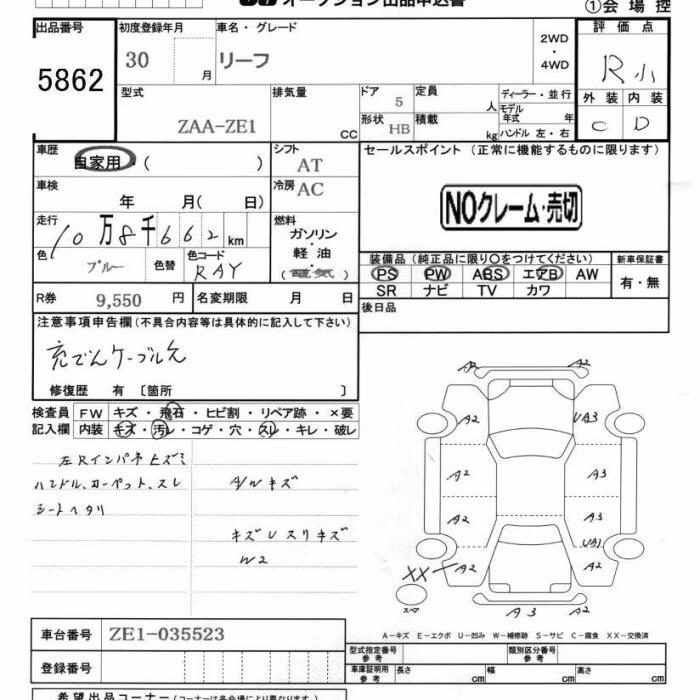 オークション出品申込書
①会場控
出品番号
5862
初度登録年月
30 月
車名・グレード
リーフ
2WD
・
4WD
評価点
R小
外装 内装
C D
型式
ZAA-ZE1
排気量
CC
ドア
5
形状 HB
定員
人
積載
kg
ディーラー・並行
モデル
年式 年
ハンドル 左・右
車歴
自家用・( )
シフト
AT
セールスポイント (正常に機能するものに限ります)
車検
年 月( 日)
冷房 AC
NOクレーム・売切
走行
10万8千662km
燃料
ガソリン
・
軽油
(電気)
色
ブルー
色替
色コード
RAY
装備品 (純正品に限り○をつけてください)
新車保証書
PS PW ABS エアB AW
SR ナビ TV カワ
有・無
R券 9,550 円
名変期限 月 日
後日品
注意事項申告欄 (不具合内容等は具体的に記入して下さい)
充でんケーブル欠
修復歴 有 〔箇所 〕
検査員 FW キズ・飛石・ヒビ割・リペア跡・×要
記入欄 内装 キズ・汚レ・コゲ・穴・スレ・キレ・破レ
左Rインパネヒズミ
ハンドル、カーペット、スレ
シートヘタリ
A/Wキズ
キズUスリキズ
W2
A2 A2
A2 UA3
A2 A3
A2 A3
UA1
XX A2 A2
スペア
A3 A2
A−キズ E−エクボ U−凹み W−補修跡 S−サビ C−腐食 XX−交換済
車台番号 ZE1-035523
登録番号
型式指定番号
参考
類別区分番号
参考
車庫証明用
参考
長さ cm 幅 cm 高さ cm
希望出品コーナー (コーナーは各会場により異なります)